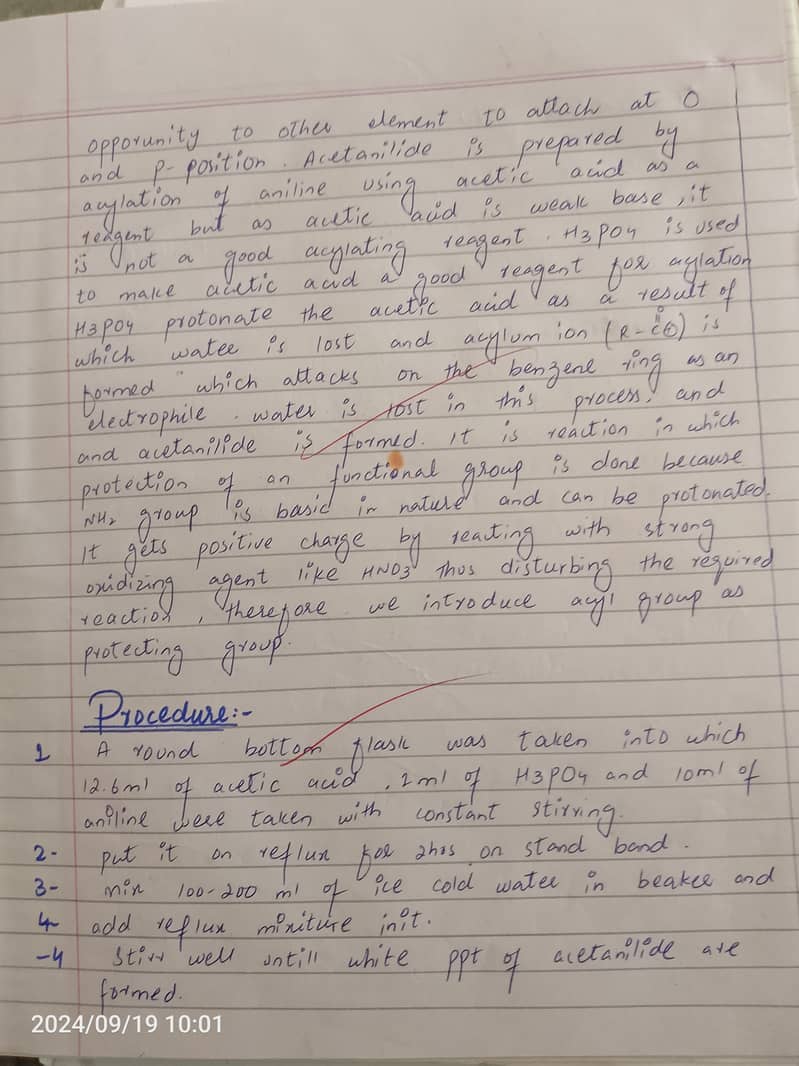 opporunity to other element to attach at O
and p-position. Acetanilide is prepared by
acylation of aniline using acetic acid as a
reagent but as acetic acid is weak base, it
is not a good acylating reagent. H3PO4 is used
to make acetic acid a good reagent for aylation
H3PO4 protonate the acetic acid as a result of
which water is lost and acylum ion (R-C⊕) is
O
formed which attacks on the benzene ring as an
electrophile. water is lost in this process, and
and acetanilide is formed. It is reaction in which
protection of an functional group is done because
NH2 group is basic in nature and can be protonated.
It gets positive charge by reacting with strong
oxidizing agent like HNO3 thus disturbing the required
reaction, therefore we introduce acyl group as
protecting group.
Procedure:-
1 A round bottom flask was taken into which
12.6ml of acetic acid, 2ml of H3PO4 and 10ml of
aniline were taken with constant stirring.
2- put it on reflux for 2hos on stand band.
3- mix 100-200 ml of ice cold water in beaker and
4- add reflux mixiture init.
-4 Stirr well untill white ppt of acetanilide are
formed.
2024/09/19 10:01